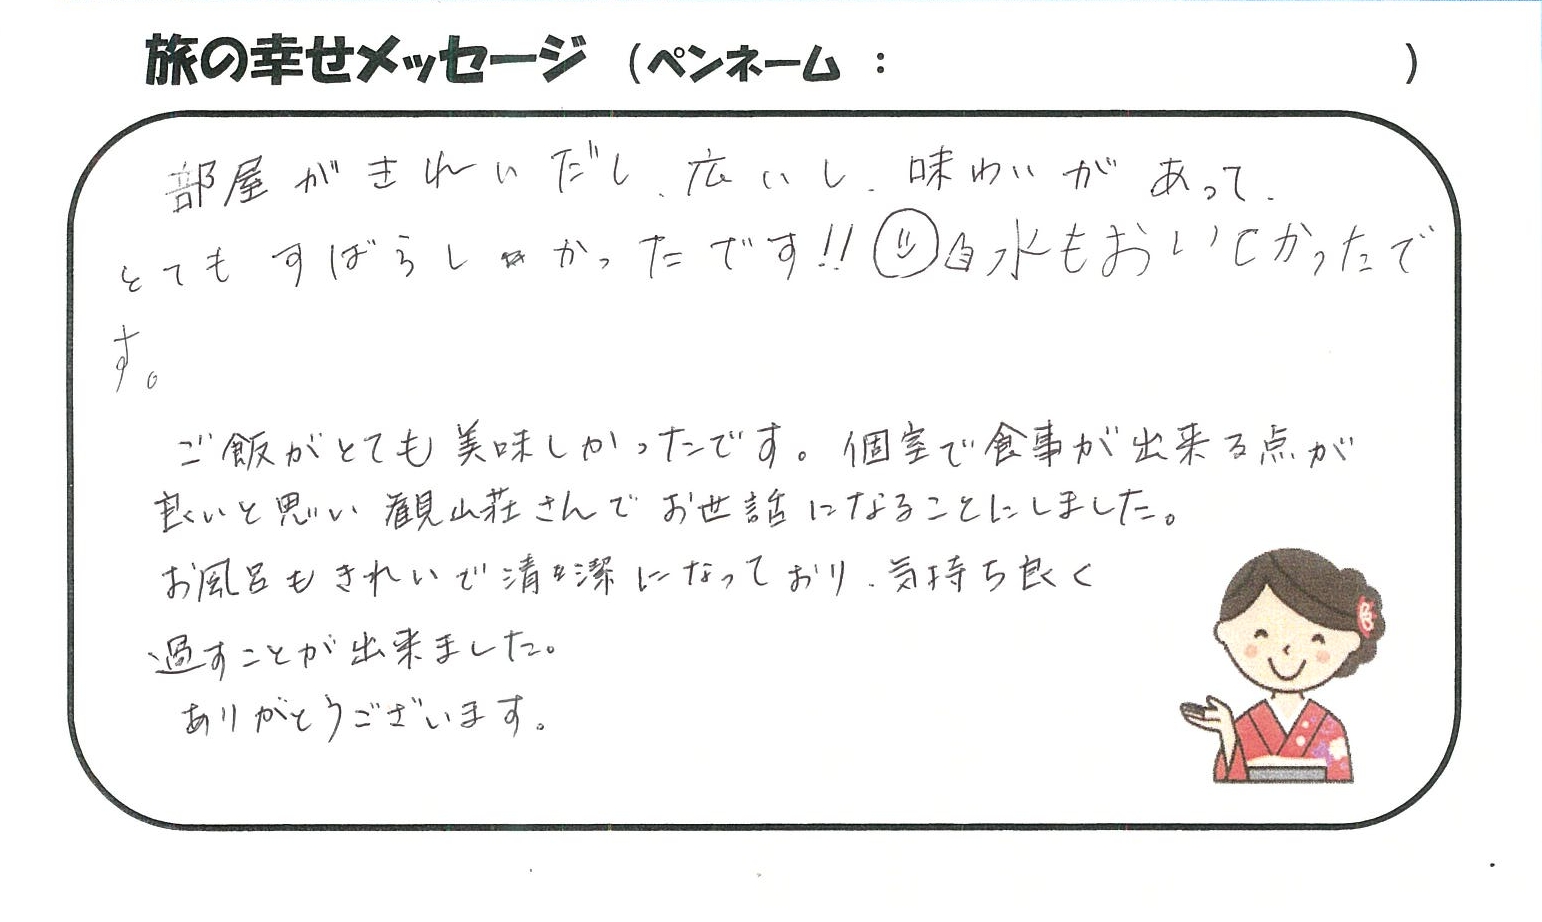 旅の幸せメッセージ （ペンネーム ： ）
部屋がきれいだし、広いし、味わいがあって、
とてもすばらしかったです!! 水もおいしかったで
す。
ご飯がとても美味しかったです。個室で食事が出来る点が
良いと思い観山荘さんでお世話になることにしました。
お風呂もきれいで清潔になっており、気持ち良く
過すことが出来ました。
ありがとうございます。